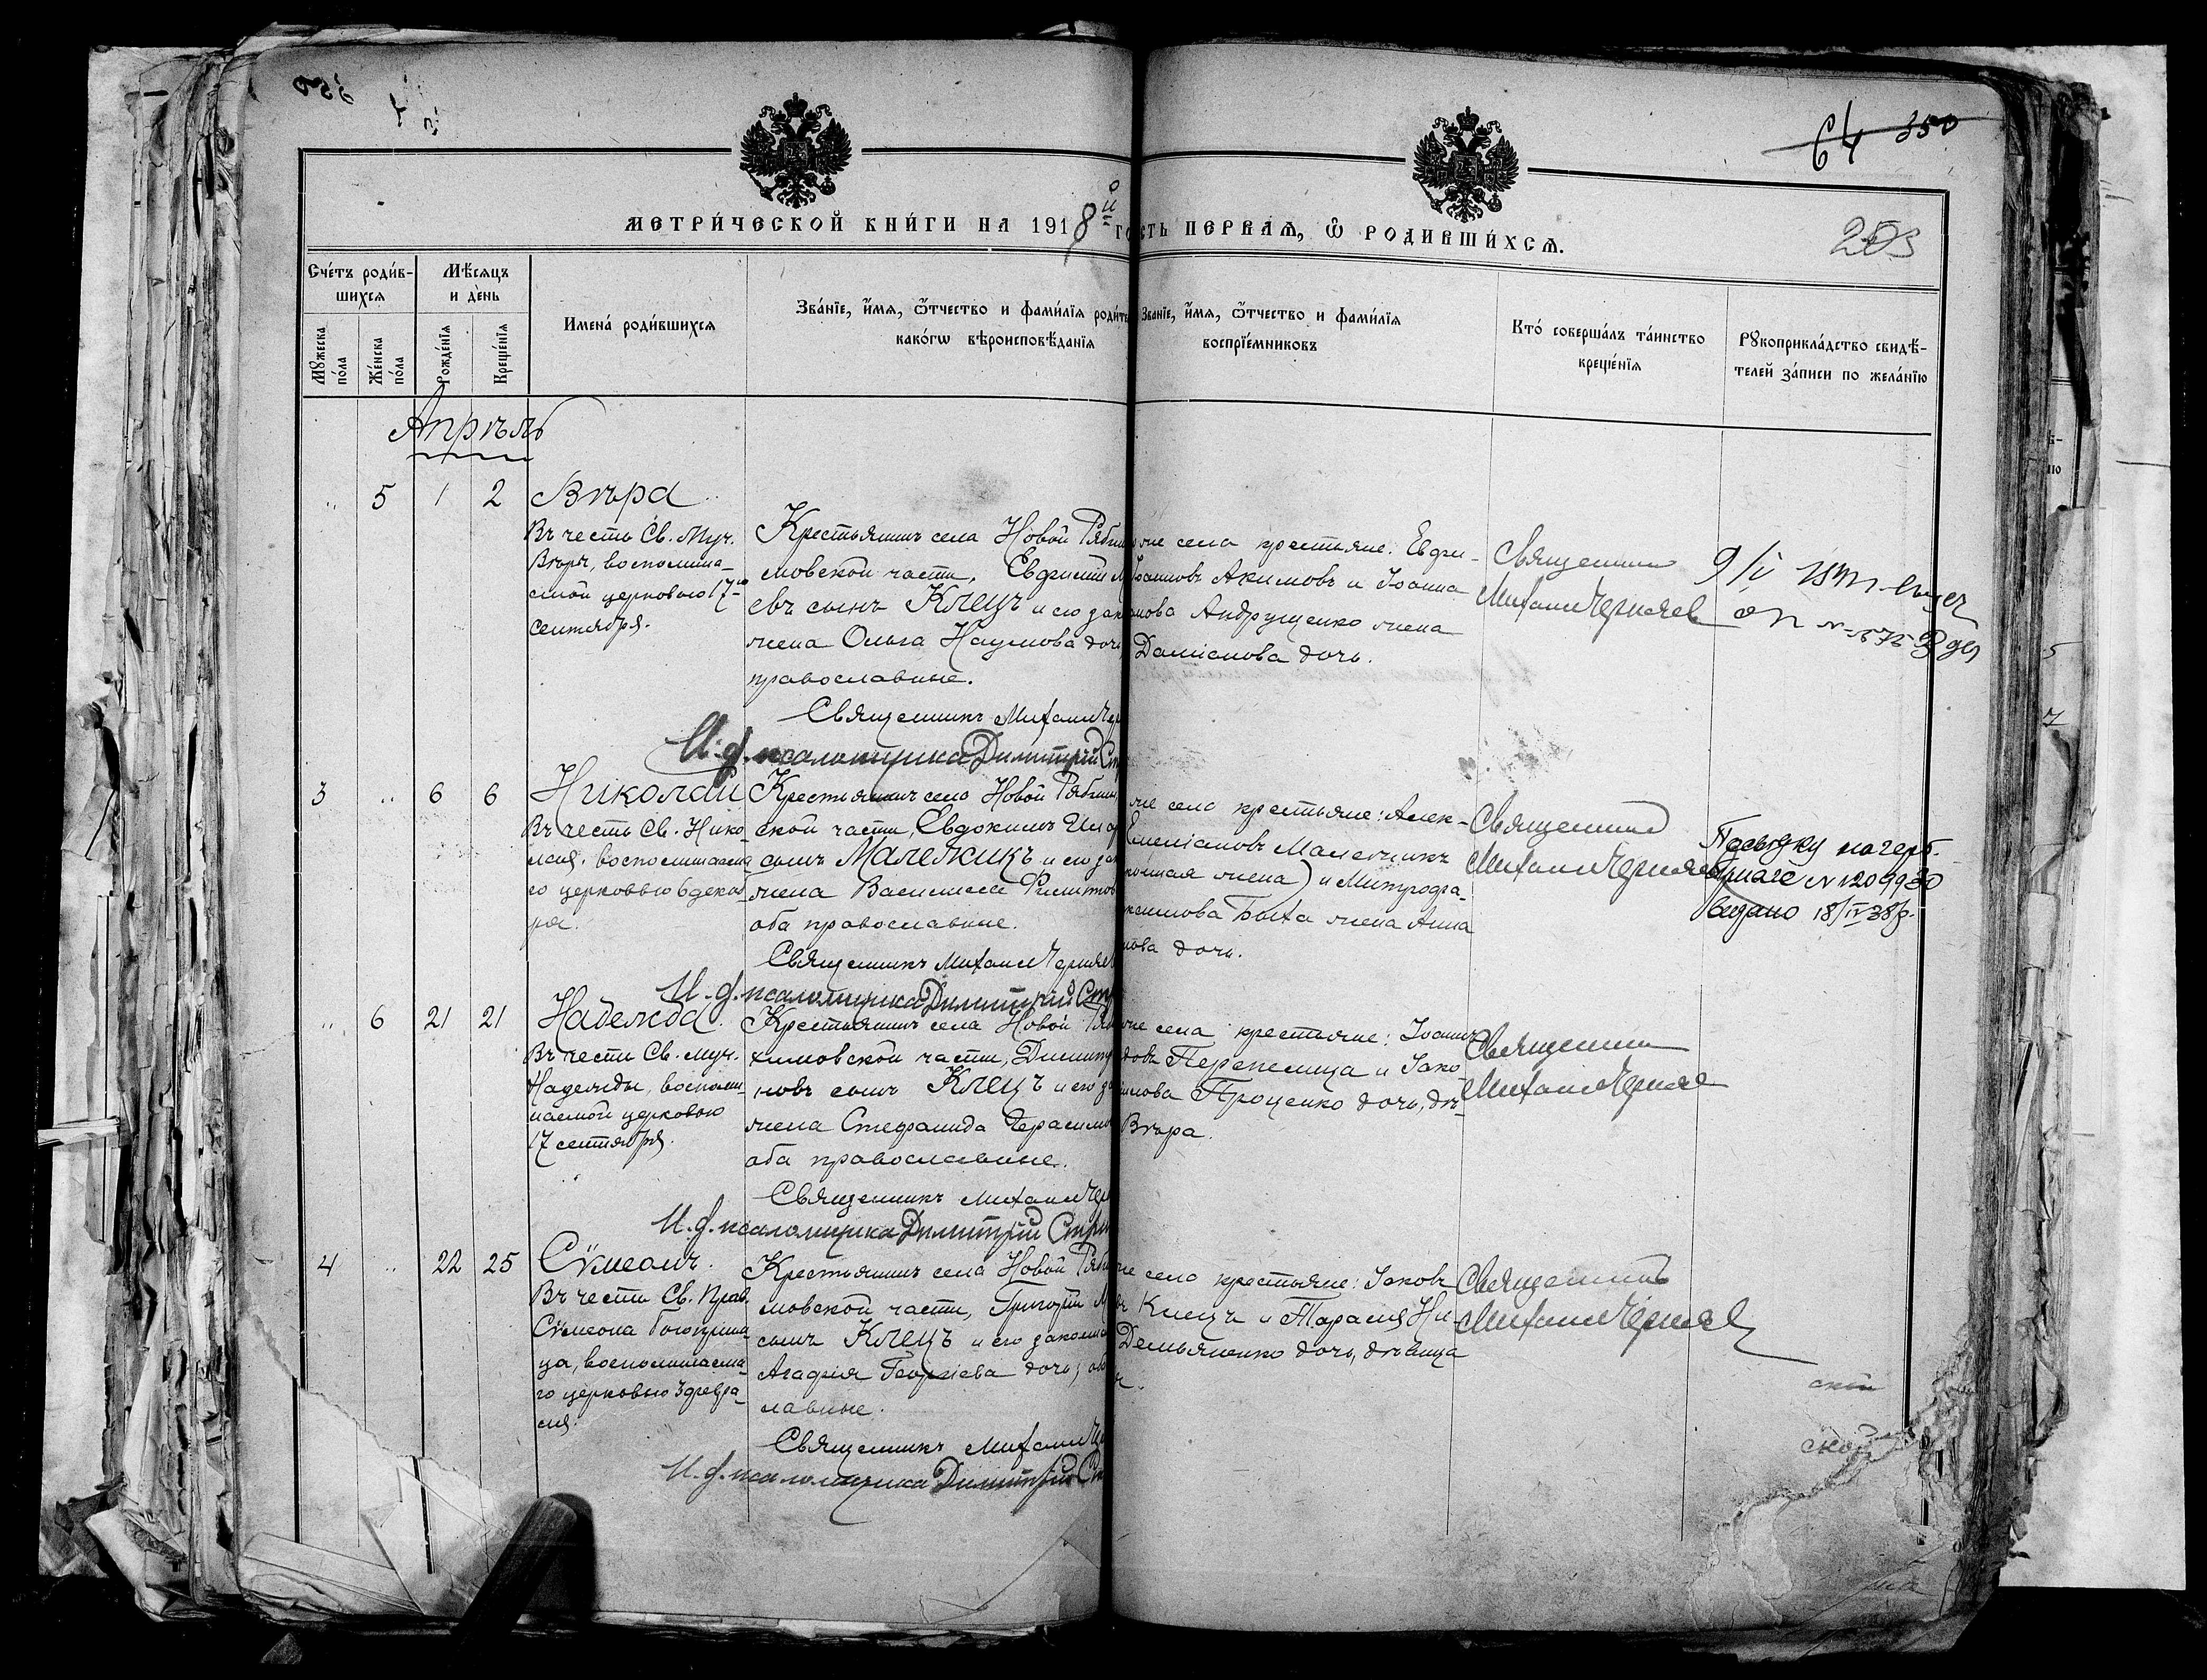 64 350
205
МЕТРИ́ЧЕСКОЙ КНИ́ГИ НА 1918й ГО ЧАСТЬ ПЕРВАѦ, Ѡ҆ РОДИВШИ́ХСѦ.
Сче́тъ роди́в-
шихсѧ
Мꙋ́жеска по́ла
Же́нска по́ла
Мѣ́сѧцъ
и де́нь
Рожде́нїѧ
Креще́нїѧ
Имена́ роди́вшихсѧ
Зва́нїе, и҆́мѧ, ѻ҆́тчество и фами́лїѧ роди́те
како́гѡ вѣроисповѣ́данїѧ
Зва́нїе, и҆́мѧ, ѻ҆́тчество и фами́лїѧ
воспрїе́мниковъ
Кто́ соверша́лъ та́инство
креще́нїѧ
Рꙋкоприкла́дство свидѣ́-
телей за́писи по жела́нїю
Апрѣль
" 5 1 2 Вѣра
Въ честь Св. Муч.
Вѣры, воспомина-
емой церковью 17-го
сентября.
Крестьянинъ села Новой Рябин
мовской части, Евфимій
евъ сынъ Клецъ и его зак
жена Ольга Наумова доч
православные.
Священникъ Михаилъ Чер
И. д. псаломщика Димитрій Ст
же села крестьяне: Евфи-
Іоанновъ Акимовъ и Іоанна
нова Андрущенко жена
Даміанова дочь.
Священникъ
Михаилъ Черняев
3 " 6 6 Николай
Въ честь Св. Нико
лая, воспоминаема
го церковью 6 декаб
ря.
Крестьянинъ села Новой Рябин
ской части, Евдокимъ
сынъ Малежикъ и его за
жена Василиса Филитов
оба православные.
Священникъ Михаилъ Черняев
И. д. псаломщика Димитрій Стр
же села крестьяне: Алек-
Малежикъ
жена) и Митрофа-
жена Анна
нова дочь.
Священникъ
Михаилъ Черняев
на герб.
бумаге N 120 9930
видано 18/IV 38 р.
" 6 21 21 Надежда.
Въ честь Св. муч.
Надежды, воспоми
наемой церковью
17 сентября.
Крестьянинъ села Новой Ряб
химовской части, Димитр
новъ сынъ Клецъ и его за
жена Стефанида Герасимо
оба православные.
Священникъ Михаилъ Чер
И. д. псаломщика Димитрій Стри
же села крестьяне: Іоаннъ
довъ Перепелица и Іако-
Проценко дочь, дѣ-
Вѣра.
Священникъ
Михаилъ Черняе
4 " 22 25 Сѵмеонъ.
Въ честь Св. Прав.
Сѵмеона Богопріим
ца, воспоминаема
го церковью 3 февра-
ля.
Крестьянинъ села Новой Ряби
мовской части, Григорій М
сынъ Клецъ и его законна
Агафія Георгіева дочь; об
лавные.
Священникъ Михаилъ Че
И. д. псаломщика Димитрій Ст
же села крестьяне: Іаковъ
Клецъ и Тарасія Ни-
Демьяненко дочь, дѣвица
Священникъ
Михаилъ Черняев